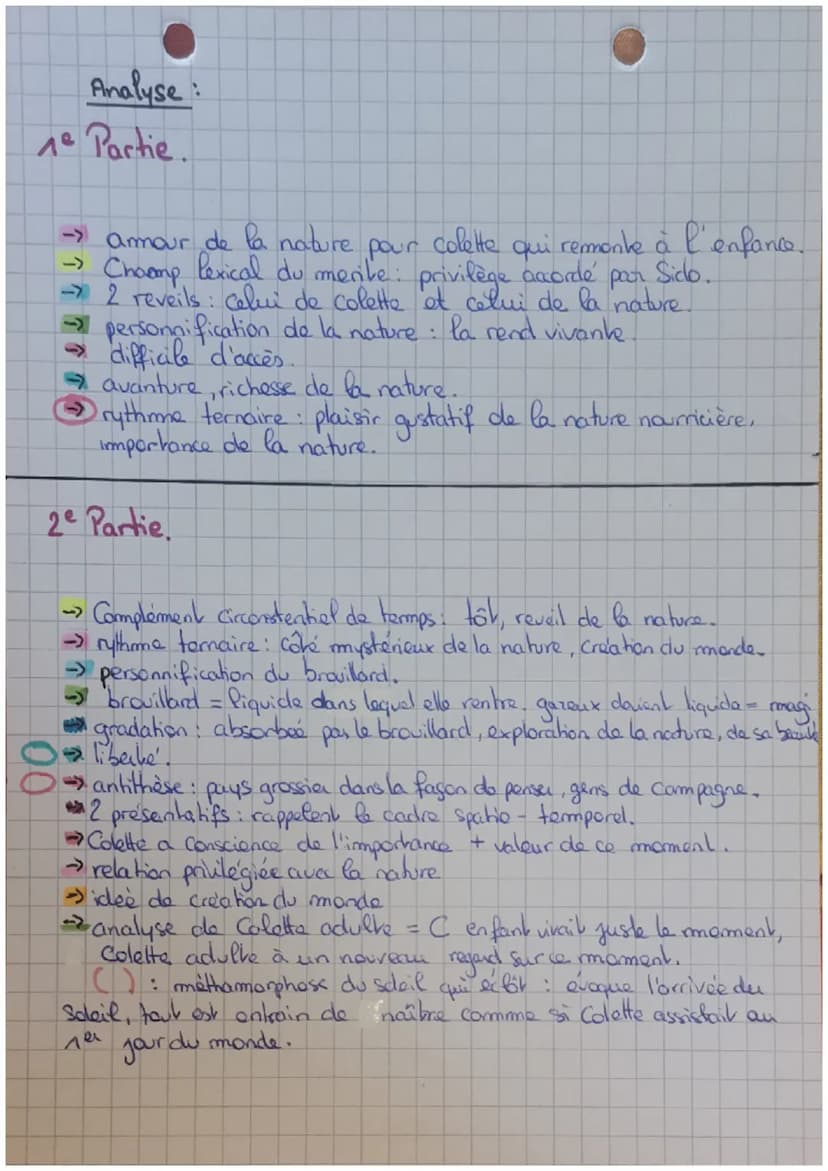 Analyse :
1e Partie.
-> amour de la nature pour colette qui remonte à l'enfance.
-> Champ lexical du merite : privilège accordé par Sido.
-> 2 reveils : celui de colette et celui de la nature.
-> personnification de la nature : la rend vivante.
-> difficile d'accès.
-> avanture, richesse de la nature.
-> rythme ternaire : plaisir gustatif de la nature nourricière,
importance de la nature.
2e Partie.
-> Complément circonstentiel de temps : tôt, reveil de la nature.
-> rythme ternaire : côté mystérieux de la nature, création du monde.
-> personnification du brouillard.
-> brouillard = liquide dans lequel elle rentre. gazeux devient liquide = magi
-> gradation : absorbée par le brouillard, exploration de la nature, de sa beauté
-> liberté.
-> antithèse : pays grossier dans la façon de penser, gens de campagne.
-> 2 présentatifs : rappelent le cadre spatio-temporel.
-> Colette a conscience de l'importance + valeur de ce moment.
-> relation privilégiée avec la nature
-> ideé de création du monde
-> analyse de Colette adulte = C enfant vivait juste le moment,
Colette adulte à un nouveau regard sur ce moment.
( ) : méthamorphose du soleil qui éclôt : évoque l'arrivée du
soleil, tout est entrain de naître comme si Colette assistait au
1er jour du monde.